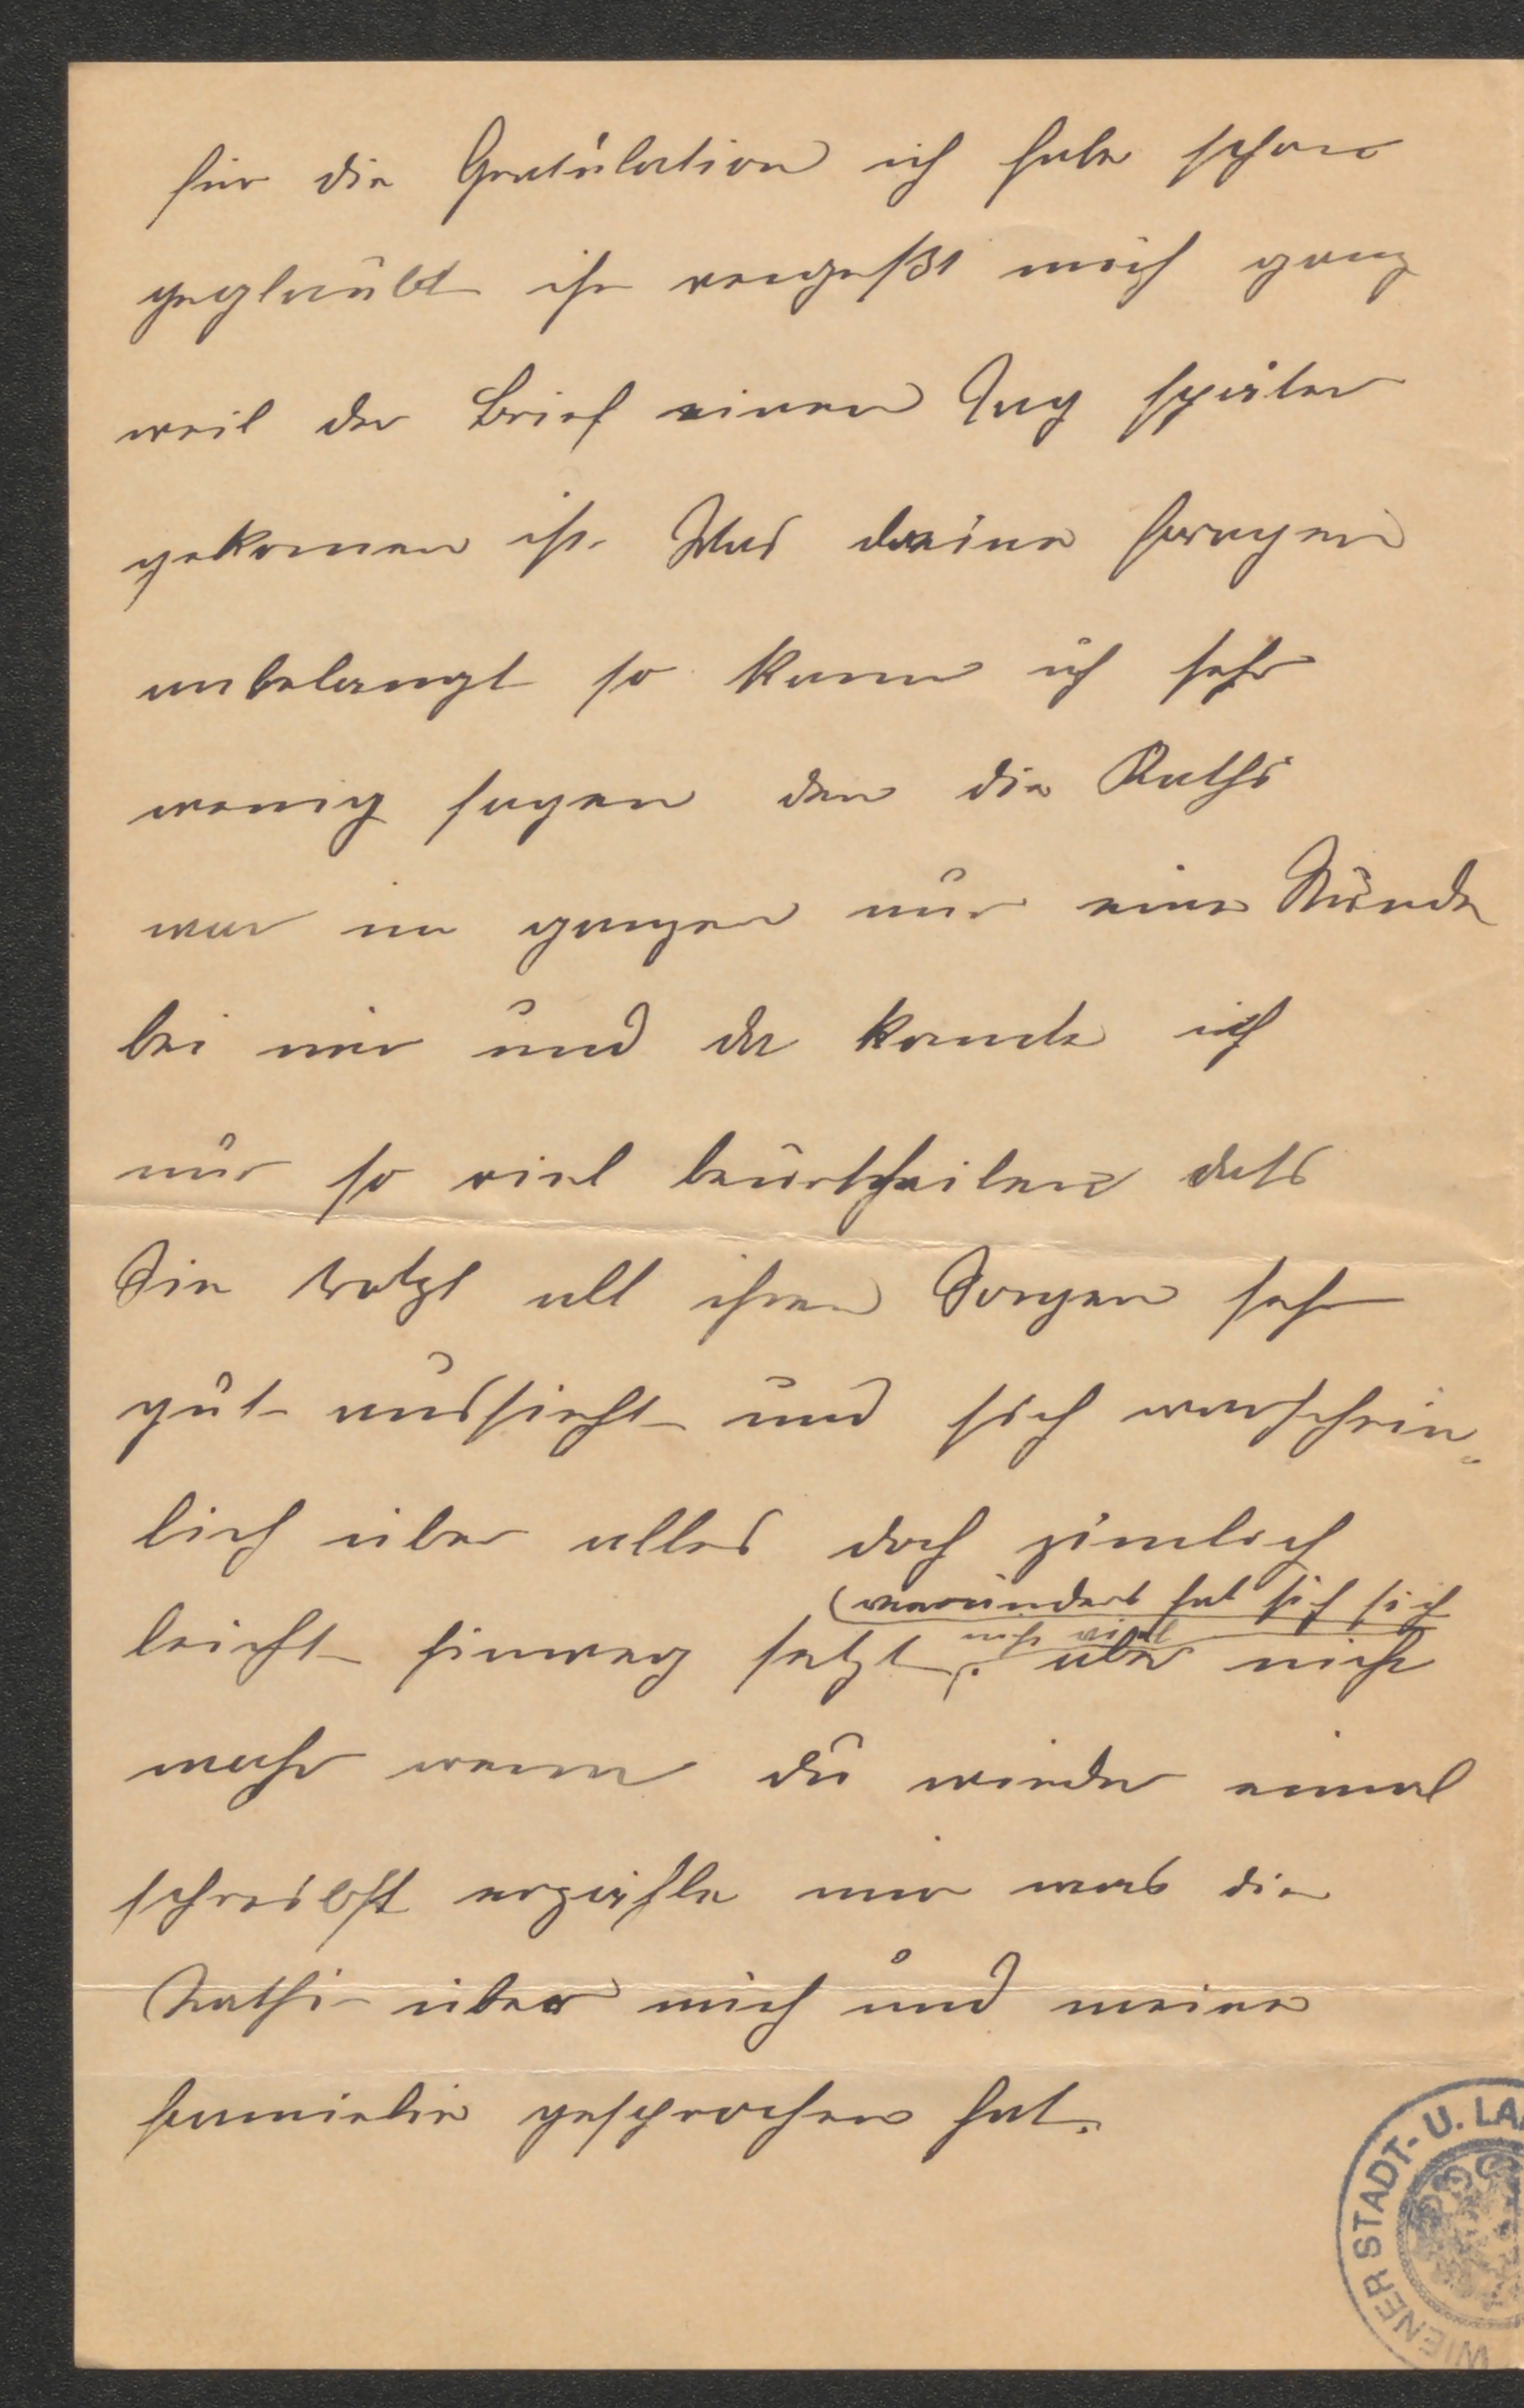 für die Gratulation ich habe schon
geglaubt ihr vergeßt mich ganz
weil der Brief einen Tag später
gekomen ist. Was deine fragen
anbelangt so kann ich sehr
wenig sagen den die Kathi
war im ganzen nur eine Stunde
bei mir und da konnte ich
nur so viel beurtheilen dass
Sie trotzt all ihren Sorgen sehr
gut aussieht und sich warschein„
lich über alles doch zimlich
(verändert hat sich sich
leicht hinweg setzt. nicht viel aber nicht
mehr wenn du wieder einmal
schreibst erzähle mir was die
Kathi über mich und meine
familie gesprochen hat.
WIENER STADT- U. LA